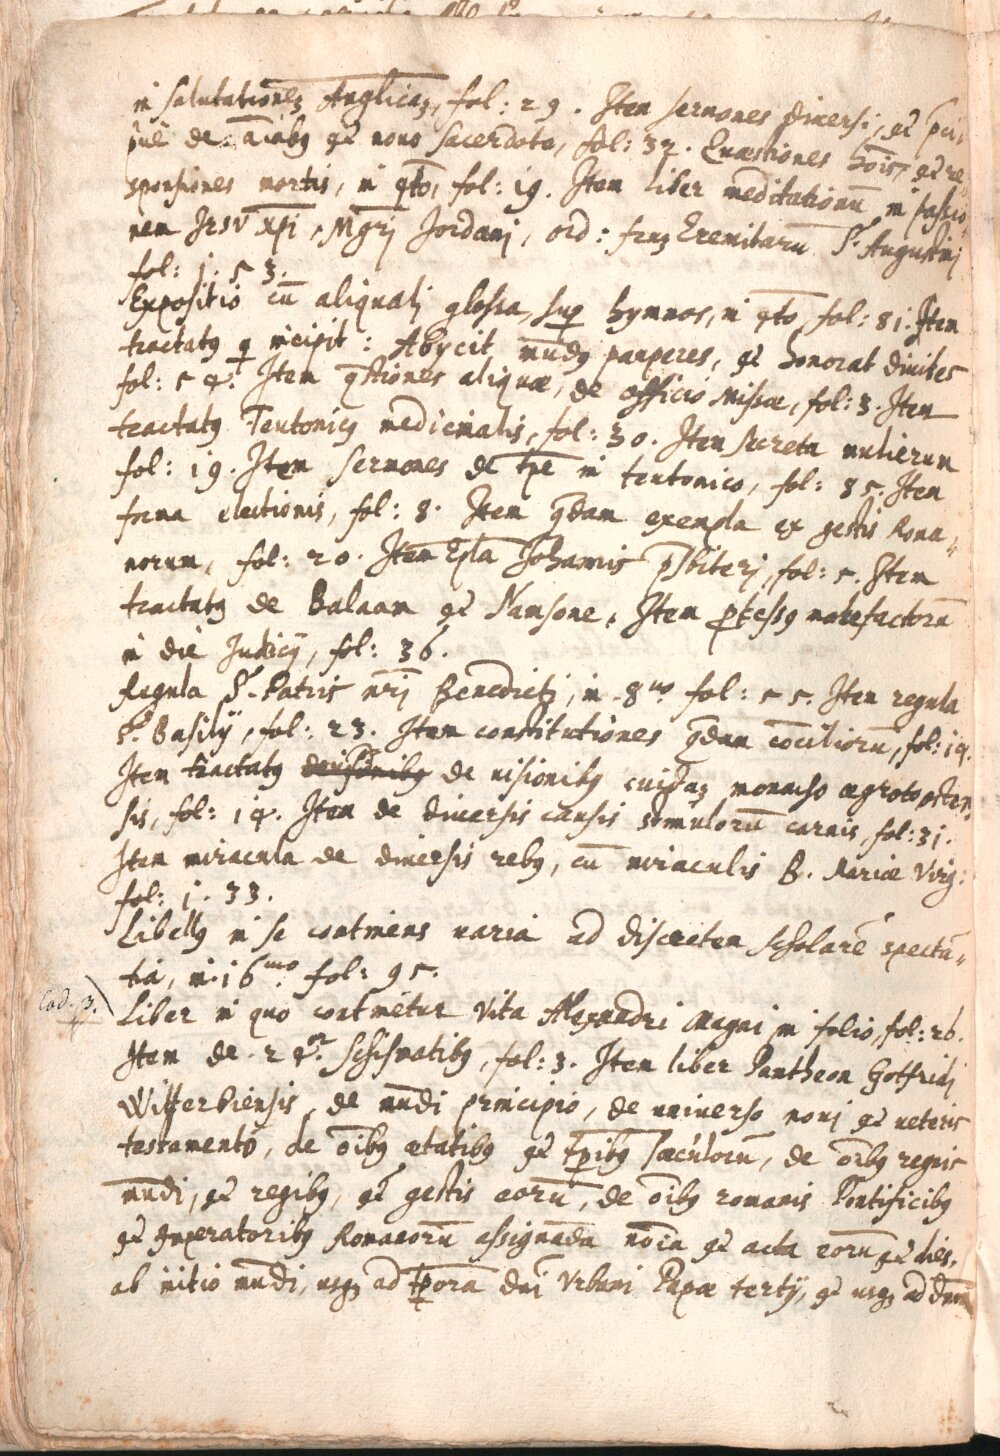 in salutationẽ Anglicã, fol: 29. Item sermones diversi, et prci-
puè de aĩabꝰ et novo sacerdote, fol: 32. Quæstiones hõis, et re-
sponsiones mortis, in qto, fol: 19. Item liber meditationũ in passio-
nem JESV Xp̃i, Mgrj Jordanj, ord: frm̃ Eremitarũ S. Augustinj
fol: 1. 53.
Expositio cũ aliqualj glossa, sup hymnos, in qto, fol: 81. Item
tractatꝰ q incipit: Abycit mũdꝰ pauperes, et honorat divites
fol: 54. Item qstiones aliquæ, de officio Missæ, fol: 3. Item
tractatꝰ Teutonicꝰ medicinalis, fol: 30. Item secreta mulierum
fol: 19. Item sermones de tpẽ in teutonico, fol: 85. Item
forma electionis, fol: 8. Item qdam exempla ex gestis Roma-
norum, fol: 20. Item Epl̃a Johannis p̃sbiterj, fol: 5. Item
tractatꝰ de Balaam et Namsone, Item pcessꝰ malefactorũ
in die Judicij, fol: 36.
Regula S. Patris nr̃j Benedictj, in 8uo fol: 55. Item regula
S. Basilij, fol: 23. Item constitutiones qdam cõciliorũ, fol: 14.
Item tractatꝰ de visionibꝰ cuipdã monacho ægroto osten-
sis, fol: 14. Item de diversis causis stimulorũ carnis, fol: 31.
Item miracula de diversis rebꝰ, cũ miraculis B. Mariæ Virg:
fol: 1. 33.
Libellꝰ in se continens varia ad discretem scholarẽ spectã-
tia, in 16mo. fol: 95.
Cod. 3.
Liber in quo continẽtur Vita Alexandri Magni, in folio, fol: 26.
Item de 24or. schismatibꝰ, fol: 3. Item liber Pantheon Gotfridj
Witterbiensis, de mũdi principio, de universo novj et veteris
testamento, de õibꝰ ætatibꝰ et tpibꝰ sæculorũ, de õibꝰ regnis
mũdi, et regibꝰ, et gestis eorũ, de õibꝰ romanis Pontificibꝰ
et Imperatoribꝰ Romanorũ assignãda nõia et acta eorũ et dies,
ab initio mũdi, usqꝫ ad tpora dñi Vrbani Papæ tertij, et usqꝫ ad dnm